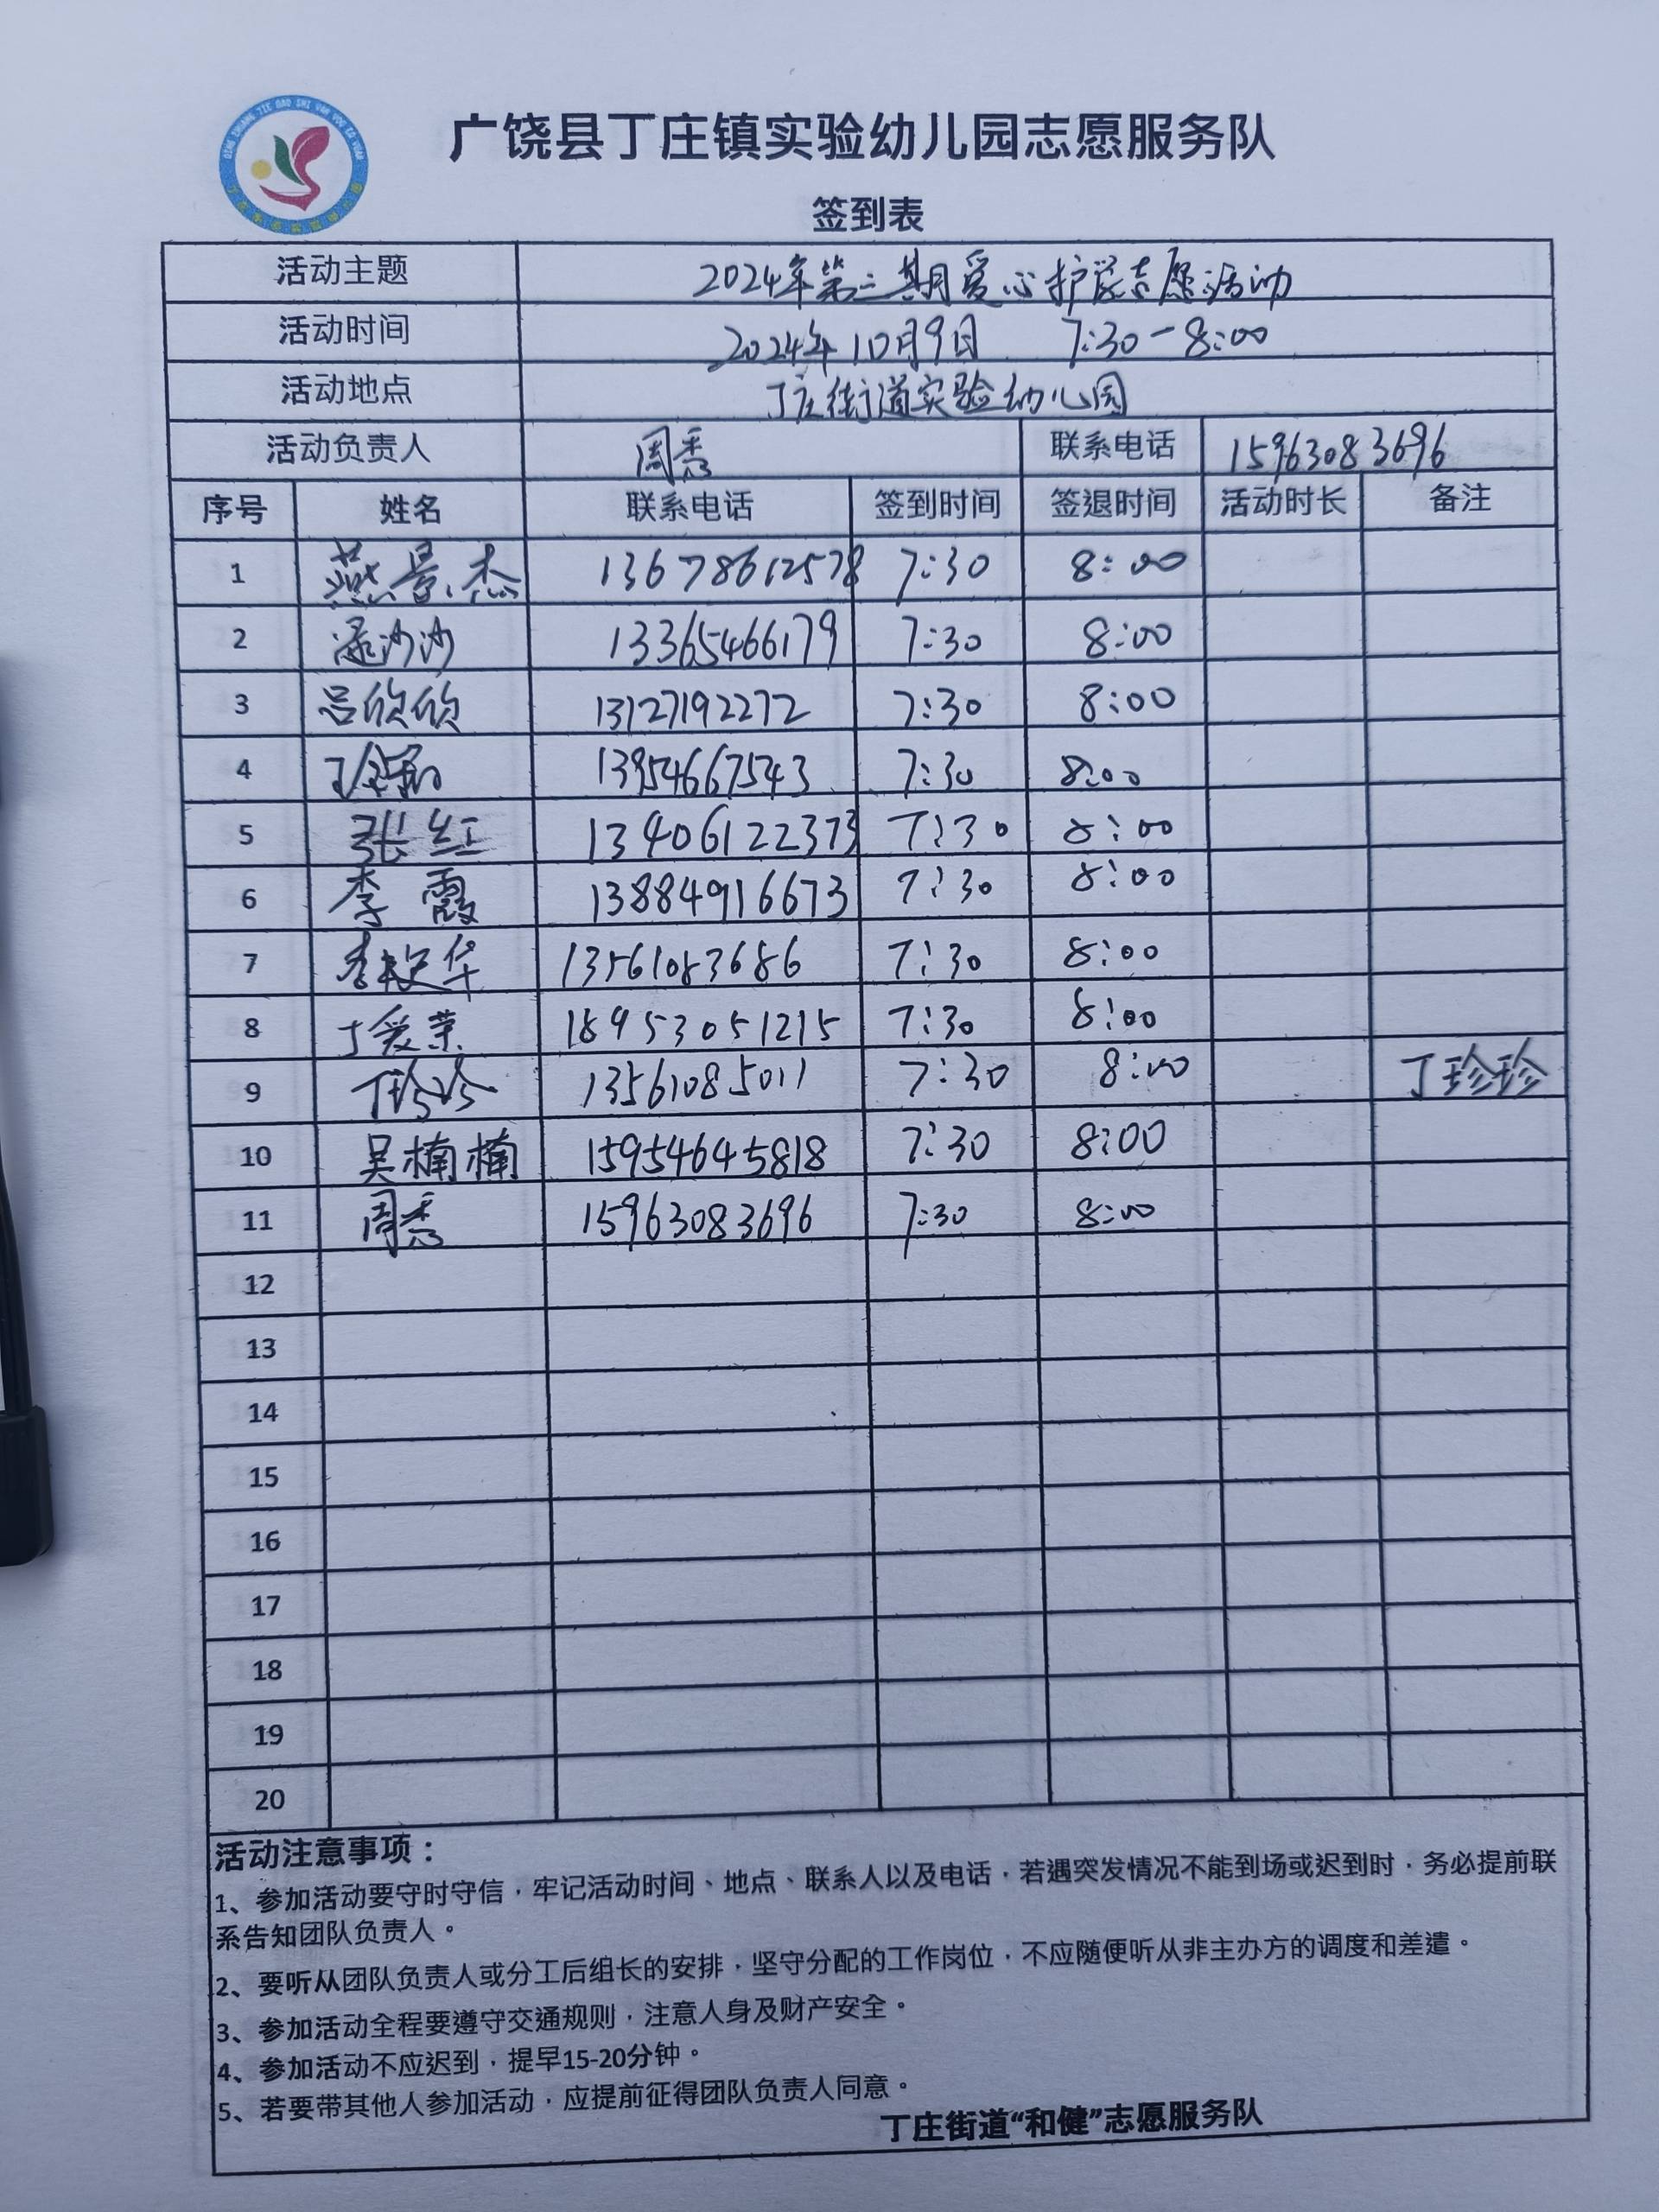 广饶县丁庄镇实验幼儿园志愿服务队
签到表
活动主题 2024年第二期爱心护学志愿活动
活动时间 2024年10月9日 7:30-8:00
活动地点 丁庄街道实验幼儿园
活动负责人 周秀 联系电话 15963083696
序号 姓名 联系电话 签到时间 签退时间 活动时长 备注
1 燕景杰 13678612578 7:30 8:00
2 沙沙 13365466179 7:30 8:00
3 吕欣欣 13127192272 7:30 8:00
4 13954667543 7:30 8:00
5 张红 13406122373 7:30 8:00
6 李霞 13884916673 7:30 8:00
7 华 13561083686 7:30 8:00
8 丁爱荣 18953051215 7:30 8:00
9 丁珍珍 13561085011 7:30 8:00 丁珍珍
10 吴楠楠 15954645818 7:30 8:00
11 周秀 15963083696 7:30 8:00
12
13
14
15
16
17
18
19
20
活动注意事项：
1、参加活动要守时守信，牢记活动时间、地点、联系人以及电话，若遇突发情况不能到场或迟到时，务必提前联
系告知团队负责人。
2、要听从团队负责人或分工后组长的安排，坚守分配的工作岗位，不应随便听从非主办方的调度和差遣。
3、参加活动全程要遵守交通规则，注意人身及财产安全。
4、参加活动不应迟到，提早15-20分钟。
5、若要带其他人参加活动，应提前征得团队负责人同意。
丁庄街道“和健”志愿服务队